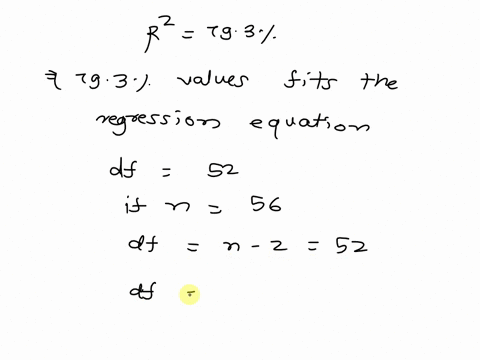 R² = 79.3%
⇒ 79.3% values fits the
regression equation
df = 52
if n = 56
df = n - 2 = 52
df =